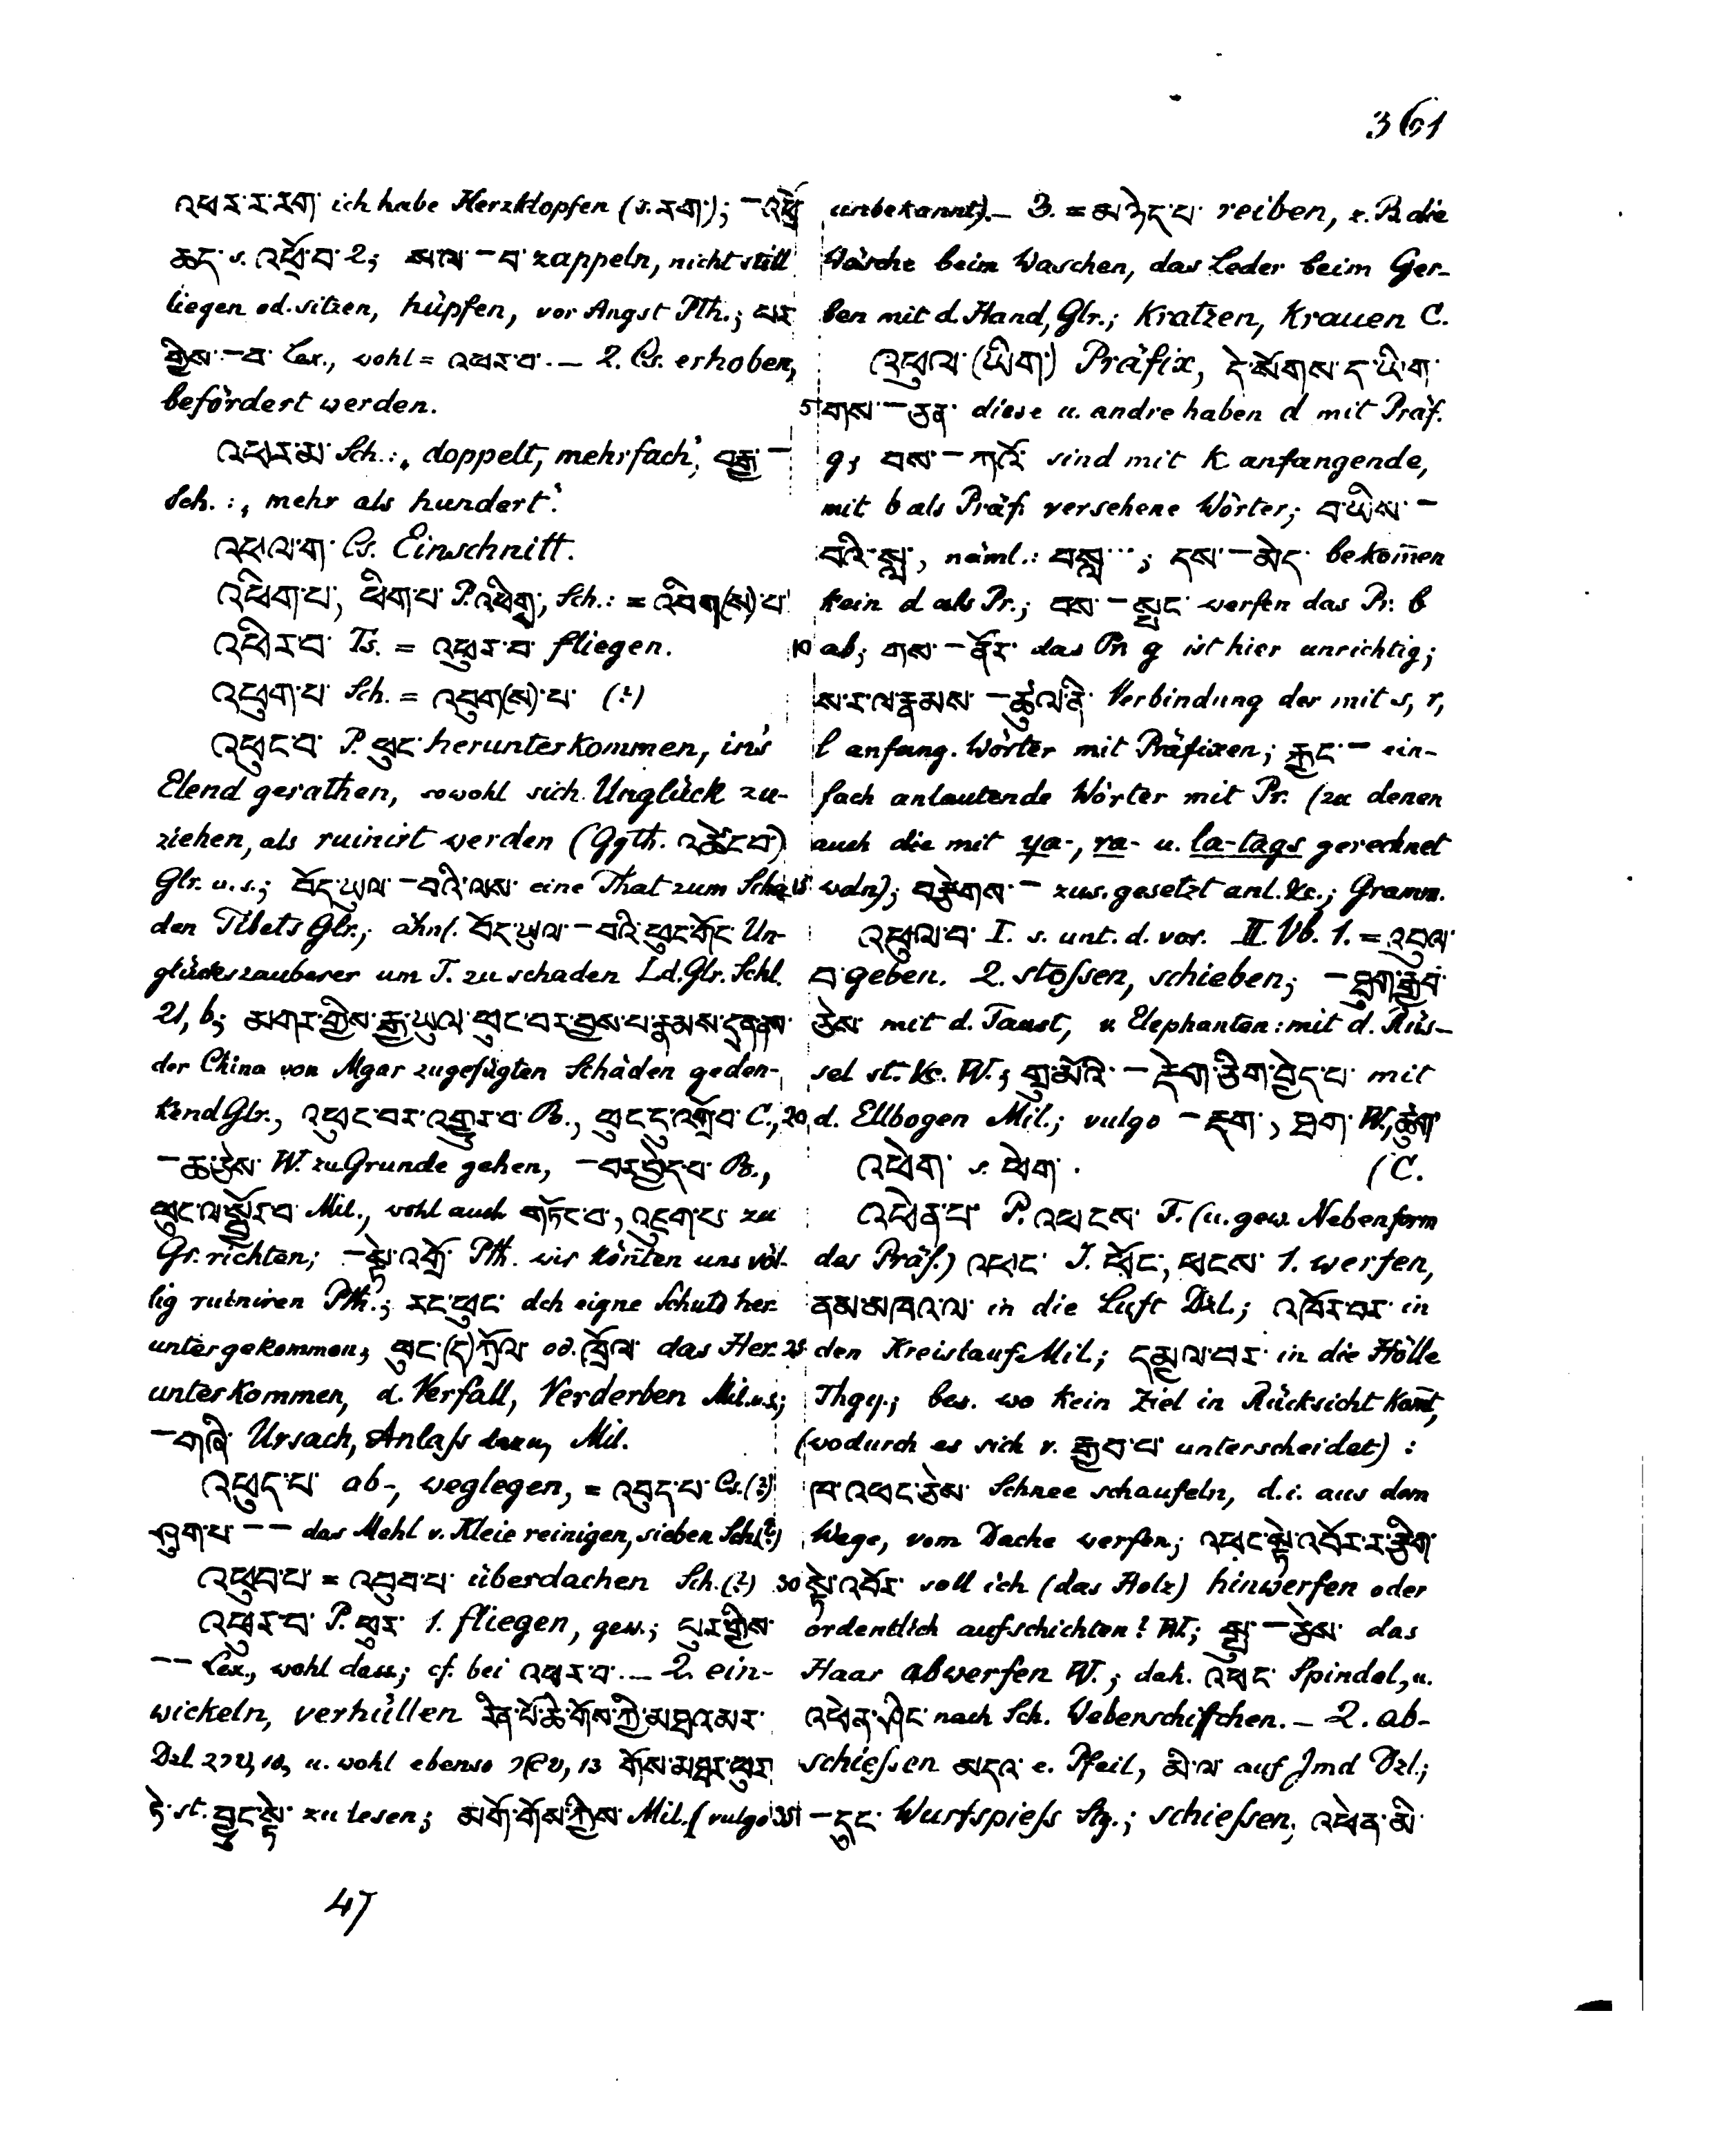 361
འཕར་ར་རག་ ich habe Herzklopfen (s. རག་); — འཕྲོ
ཆད་ s. འཕྲོ་བ་ 2; སལ་ — བ་ zappeln, nicht still
liegen od. sitzen, hüpfen, vor Angst Pth.; པར
གྱིས་ — བ་ Lex., wohl = འཕར་བ་. — 2. Cs. erhoben,
befördert werden.
འཕར་མ་ Sch.: ‚doppelt, mehrfach', བརྒྱ་ —
Sch.: ‚mehr als hundert'.
འཕལ་ག་ Cs. Einschnitt.
འཕིག་པ་, ཕིག་པ་ P. འཕིག, Sch.: = འབིག(ས)་པ་
འཕིར་བ་ Ts. = འཕུར་བ་ fliegen.
འཕུག་པ་ Sch. = འབུག(ས)་པ་ (?)
འཕུང་བ་ P. ཕུང་ herunterkommen, in's
Elend gerathen, sowohl sich Unglück zu-
ziehen, als ruinirt werden (Ggth. འཚེངབ་)
Glr. u. s.; བོད་ཡུལ་ — བའི་ལས་ eine That zum Scha
den Tibets Glr.; ähnl. བོད་ཡུལ་ — བའི་ཕུང་གོང་ Un-
glückszauberer um T. zu schaden Ld. Glr. Schl.
21, b; མགར་གྱིས་རྒྱ་ཡུལ་ཕུང་བར་བྱས་པ་རྣམས་དྲན་ནས
der China von Mgar zugefügten Schäden geden-
kend Glr., འཕུང་བར་འགྱུར་བ་ B., ཕུང་དུ་འགྲོ་བ་ C.,
— ཆ་ཅེས་ W. zu Grunde gehen, — བར་བྱེད་པ་ B.,
ཕུང་ལ་སྦྱོར་བ་ Mil., wohl auch གཏོང་བ་, འཇུག་པ་ zu
Gr. richten; — སྟེ་འགྲོ་ Pth. wir kön̄ten uns völ-
lig ruiniren Pth.; རང་ཕུང་ dch eigne Schuld her-
untergekommen; ཕུང་(ད)ཀྲོལ་ od. ཁྲོལ་ das Her-
unterkommen, d. Verfall, Verderben Mil. u. s.;
— གཞི་ Ursach, Anlaſs dazu, Mil.
འཕུད་པ་ ab-, weglegen, = འབུད་པ་ Cs. (?)
ཤུག་པ་ — — das Mehl v. Kleie reinigen, sieben Sch (?)
འཕུབ་པ་ = འབུབ་པ་ überdachen Sch. (?)
འཕུར་བ་ P. ཕུར་ 1. fliegen, gew.; པུར་གྱིས་
— — Lex., wohl dass; cf. bei འཕར་བ་. — 2. ein-
wickeln, verhüllen རིན་པོ་ཆེ་གོས་ཀྱི་མཐའ་མར་
Dzl. ༢༡༧, 10, u. wohl ebenso ༡༩༧, 13 གོས་མཐར་ཕུར
ཏེ་ st. བྱུང་སྟེ་ zu lesen; མགོ་གོས་ཀྱིས་ Mil. (vulgo
unbekannt). — 3. = མཉེད་པ་ reiben, z. B. die
Wäsche beim Waschen, das Leder beim Ger-
ben mit d. Hand, Glr.; kratzen, krauen C.
འཕུལ་ (ཡིག་) Präfix, དེ་སོགས་ད་ཡི་ག་
5 གས་ — ཅན་ diese u. andre haben d mit Präf.
g; བས་ — ཀའོ་ sind mit k anfangende,
mit b als Präf. versehene Wörter; བ་ཡིས་ —
བའི་སླ་, näml.: བསླ་ ...; དས་ — མེད་ bekom̄en
kein d als Pr.; བས་ — སྤང་ werfen das Pr. b
10 ab; གས་ — ནོར་ das Pr. g ist hier unrichtig;
ས་ར་ལ་རྣམས་ — ཚུལ་ནི་ Verbindung der mit s, r,
l anfang. Wörter mit Präfixen; རྐྱང་ — ein-
fach anlautende Wörter mit Pr. (zu denen
auch die mit ya-, ra- u. la-tags gerechnet
15 wdn); བརྩེགས་ — zus. gesetzt anl. &c.; Gramm.
འཕུལ་བ་ I. s. unt. d. vor. II. Vb. 1. = འབུལ་
བ་ geben. 2. stoſsen, schieben; — ཕྲག་རྒྱབ་
ཅེས་ mit d. Faust, v. Elephanten: mit d. Rüs-
sel st. &c. W.; གྲུ་མོའི་ — རྡེག་ཅིག་བྱེད་པ་ mit
20 d. Ellbogen Mil.; vulgo — རྡག་, ཕྲག་ W., རྒྱག་
འཕེག་ s. ཕེག་. (C.
འཕེན་པ་ P. འཕངས་ F. (u. gew. Nebenform
des Präs.) འཕང་ I. ཕོང་, ཕངས་ 1. werfen,
ནམ་མཁའ་ལ་ in die Luft Dzl.; འཁོར་བར་ in
25 den Kreislauf Mil.; དམྱལ་བར་ in die Hölle
Thgy.; bes. wo kein Ziel in Rücksicht kom̄t,
(wodurch es sich v. རྒྱབ་པ་ unterscheidet):
ཁ་འཕང་ཅེས་ Schnee schaufeln, d. i. aus dem
Wege, vom Dache werfen; འཕང་སྟེ་འབོར་ར་རྩིག་
30 སྟེ་འབོར་ soll ich (das Holz) hinwerfen oder
ordentlich aufschichten? W.; སྐྲ་ — ཅེས་ das
Haar abwerfen W.; dah. འཕང་ Spindel, u.
འཕེན་ཤིང་ nach Sch. Weberschiffchen. — 2. ab-
schieſsen མདའ་ e. Pfeil, མི་ལ་ auf Jmd Dzl.;
35 — དུང་ Wurfspieſs Stg.; schieſsen, འཕེན་མི་
47